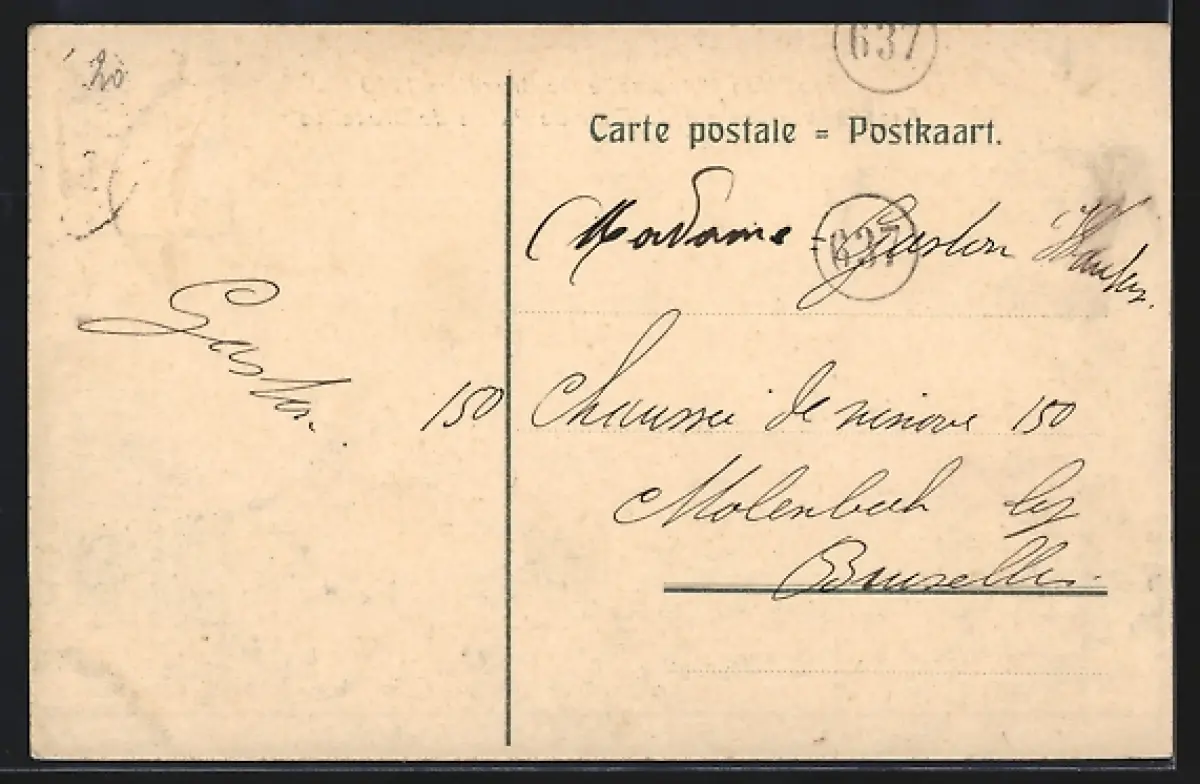 20
637
Carte postale = Postkaart.
Madame = Gaston
637
Gaston.
150 Chaussée de ninove 150
Molenbeek lez
Bruxelles.